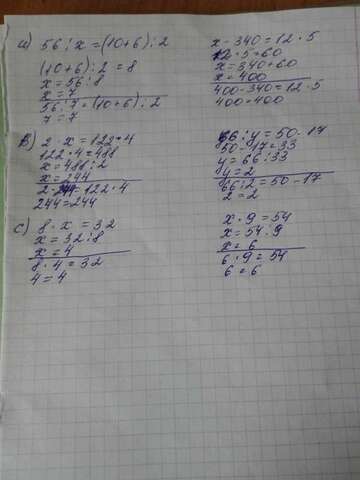 a) 56 : x = (10+6) : 2
(10+6) : 2 = 8
x = 56 : 8
x = 7
56 : 7 = (10+6) : 2
7 = 7
x - 340 = 12 · 5
12 · 5 = 60
x = 340 + 60
x = 400
400 - 340 = 12 · 5
400 = 400
b) 2 · x = 122 · 4
122 · 4 = 488
x = 488 : 2
x = 244
2 · 244 = 122 · 4
244 = 244
66 : y = 50 - 17
50 - 17 = 33
y = 66 : 33
y = 2
66 : 2 = 50 - 17
2 = 2
c) 8 · x = 32
x = 32 : 8
x = 4
8 · 4 = 32
4 = 4
x · 9 = 54
x = 54 : 9
x = 6
6 · 9 = 54
6 = 6